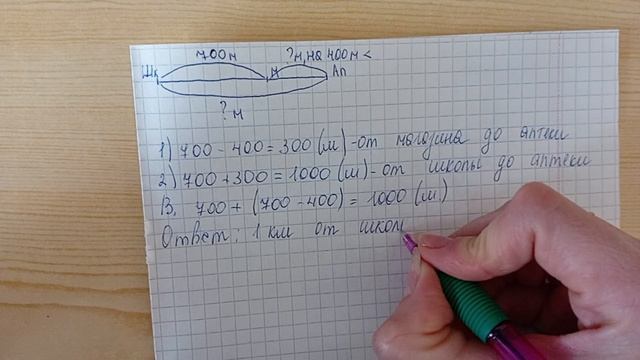 700м ?м, на 400м <
Шк М Ап
? м
1) 700 - 400 = 300 (м) - от магазина до аптеки
2) 700 + 300 = 1000 (м) - от школы до аптеки
В. 700 + (700 - 400) = 1000 (м)
Ответ: 1 км от школ